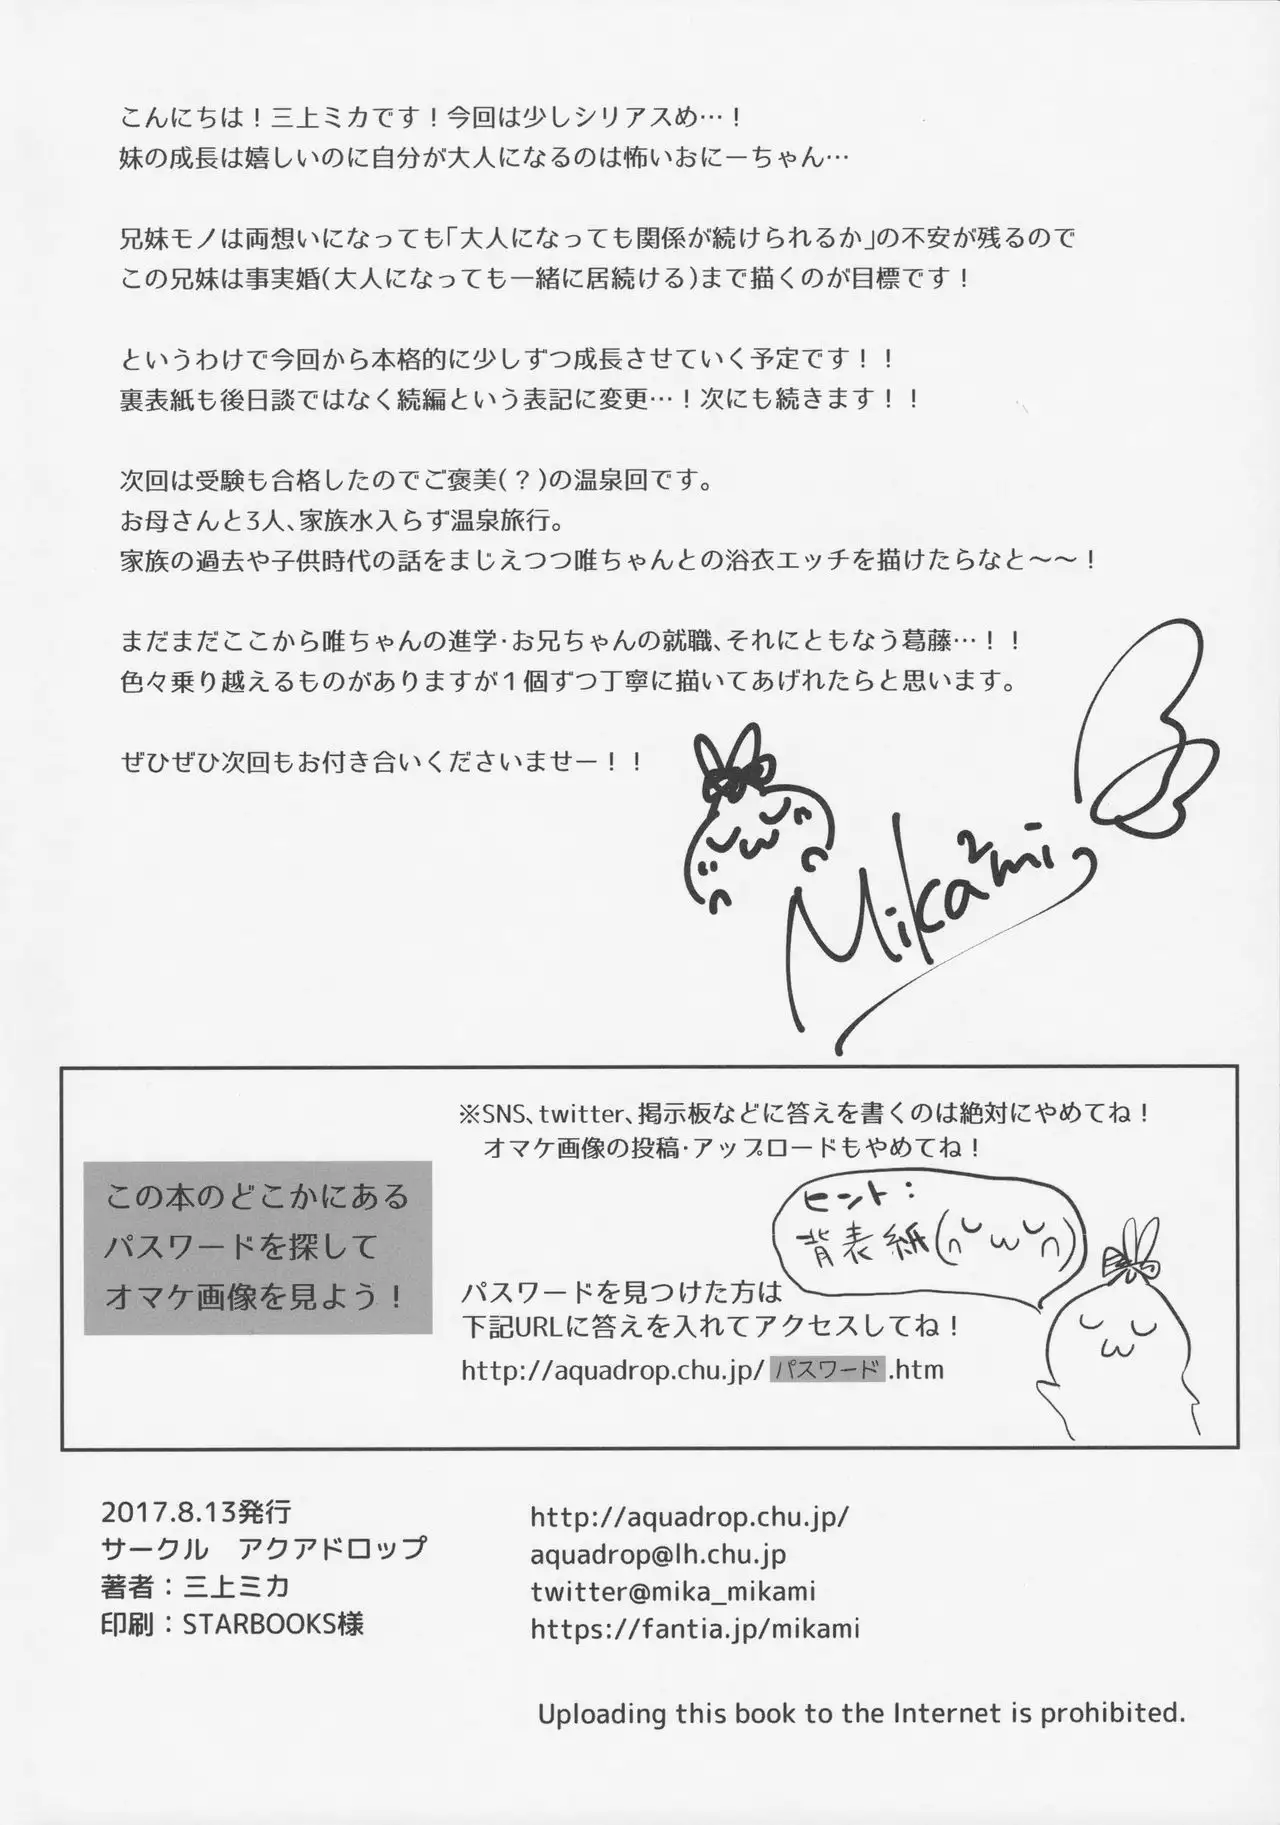 こんにちは！三上ミカです！今回は少しシリアスめ…！
妹の成長は嬉しいのに自分が大人になるのは怖いおにーちゃん…
兄妹モノは両想いになっても「大人になっても関係が続けられるか」の不安が残るので
この兄妹は事実婚(大人になっても一緒に居続ける)まで描くのが目標です！
というわけで今回から本格的に少しずつ成長させていく予定です！！
裏表紙も後日談ではなく続編という表記に変更…！次にも続きます！！
次回は受験も合格したのでご褒美(？)の温泉回です。
お母さんと3人、家族水入らず温泉旅行。
家族の過去や子供時代の話をまじえつつ唯ちゃんとの浴衣エッチを描けたらなと～～！
まだまだここから唯ちゃんの進学・お兄ちゃんの就職、それにともなう葛藤…！！
色々乗り越えるものがありますが１個ずつ丁寧に描いてあげれたらと思います。
ぜひぜひ次回もお付き合いくださいませー！！
Mika²mi
この本のどこかにある
パスワードを探して
オマケ画像を見よう！
※SNS、twitter、掲示板などに答えを書くのは絶対にやめてね！
オマケ画像の投稿・アップロードもやめてね！
ヒント：
背表紙
パスワードを見つけた方は
下記URLに答えを入れてアクセスしてね！
http://aquadrop.chu.jp/パスワード.htm
2017.8.13発行
サークル　アクアドロップ
著者：三上ミカ
印刷：STARBOOKS様
http://aquadrop.chu.jp/
aquadrop@lh.chu.jp
twitter@mika_mikami
https://fantia.jp/mikami
Uploading this book to the Internet is prohibited.